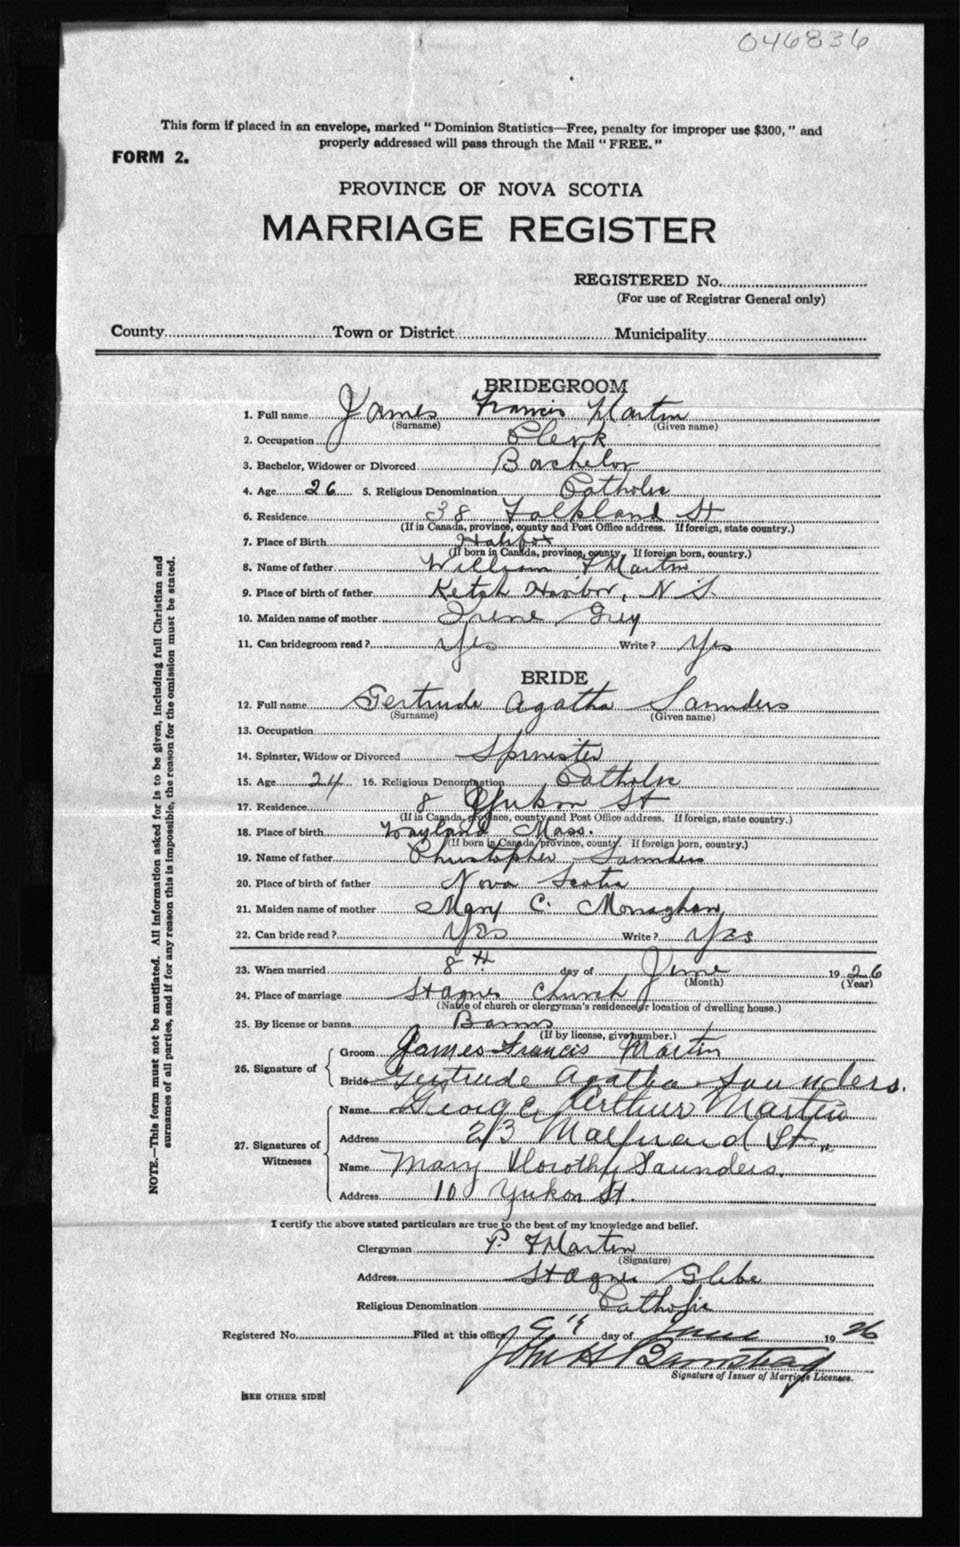 046836
This form if placed in an envelope, marked "Dominion Statistics—Free, penalty for improper use $300," and
properly addressed will pass through the Mail "FREE."
FORM 2.
PROVINCE OF NOVA SCOTIA
MARRIAGE REGISTER
REGISTERED No.
(For use of Registrar General only)
County Town or District Municipality
BRIDEGROOM
1. Full name James Francis Martin
(Surname) (Given name)
2. Occupation Clerk
3. Bachelor, Widower or Divorced Bachelor
4. Age 26 5. Religious Denomination Catholic
6. Residence 38 Falkland St
(If in Canada, province, county and Post Office address. If foreign, state country.)
7. Place of Birth Halifax
(If born in Canada, province, county. If foreign born, country.)
8. Name of father William Martin
9. Place of birth of father Ketch Harbor, N S.
10. Maiden name of mother Irene Grey
11. Can bridegroom read? Yes Write? Yes
BRIDE
12. Full name Gertrude Agatha Saunders
(Surname) (Given name)
13. Occupation
14. Spinster, Widow or Divorced Spinster
15. Age 24 16. Religious Denomination Catholic
17. Residence 8 Yukon St
(If in Canada, province, county and Post Office address. If foreign, state country.)
18. Place of birth Wayland Mass.
(If born in Canada, province, county. If foreign born, country.)
19. Name of father Christopher Saunders
20. Place of birth of father Nova Scotia
21. Maiden name of mother Mary C. Monaghan
22. Can bride read? Yes Write? Yes
23. When married 8th day of June 1926
(Month) (Year)
24. Place of marriage St Agnes Church
(Name of church or clergyman's residence or location of dwelling house.)
25. By license or banns Banns
(If by license, give number.)
26. Signature of
Groom James Francis Martin
Bride Gertrude Agatha Saunders.
27. Signatures of Witnesses
Name George Arthur Martin
Address 213 St.,
Name Mary Dorothy Saunders.
Address 10 Yukon St.
I certify the above stated particulars are true to the best of my knowledge and belief.
Clergyman P. Martin
(Signature)
Address St Agnes Glebe
Religious Denomination Catholic
Registered No. Filed at this office 9th day of June 1926
John H Barnstead
Signature of Issuer of Marriage Licenses.
[SEE OTHER SIDE]
NOTE.—This form must not be mutilated. All information asked for is to be given, including full Christian and
surnames of all parties, and if for any reason this is impossible, the reason for the omission must be stated.